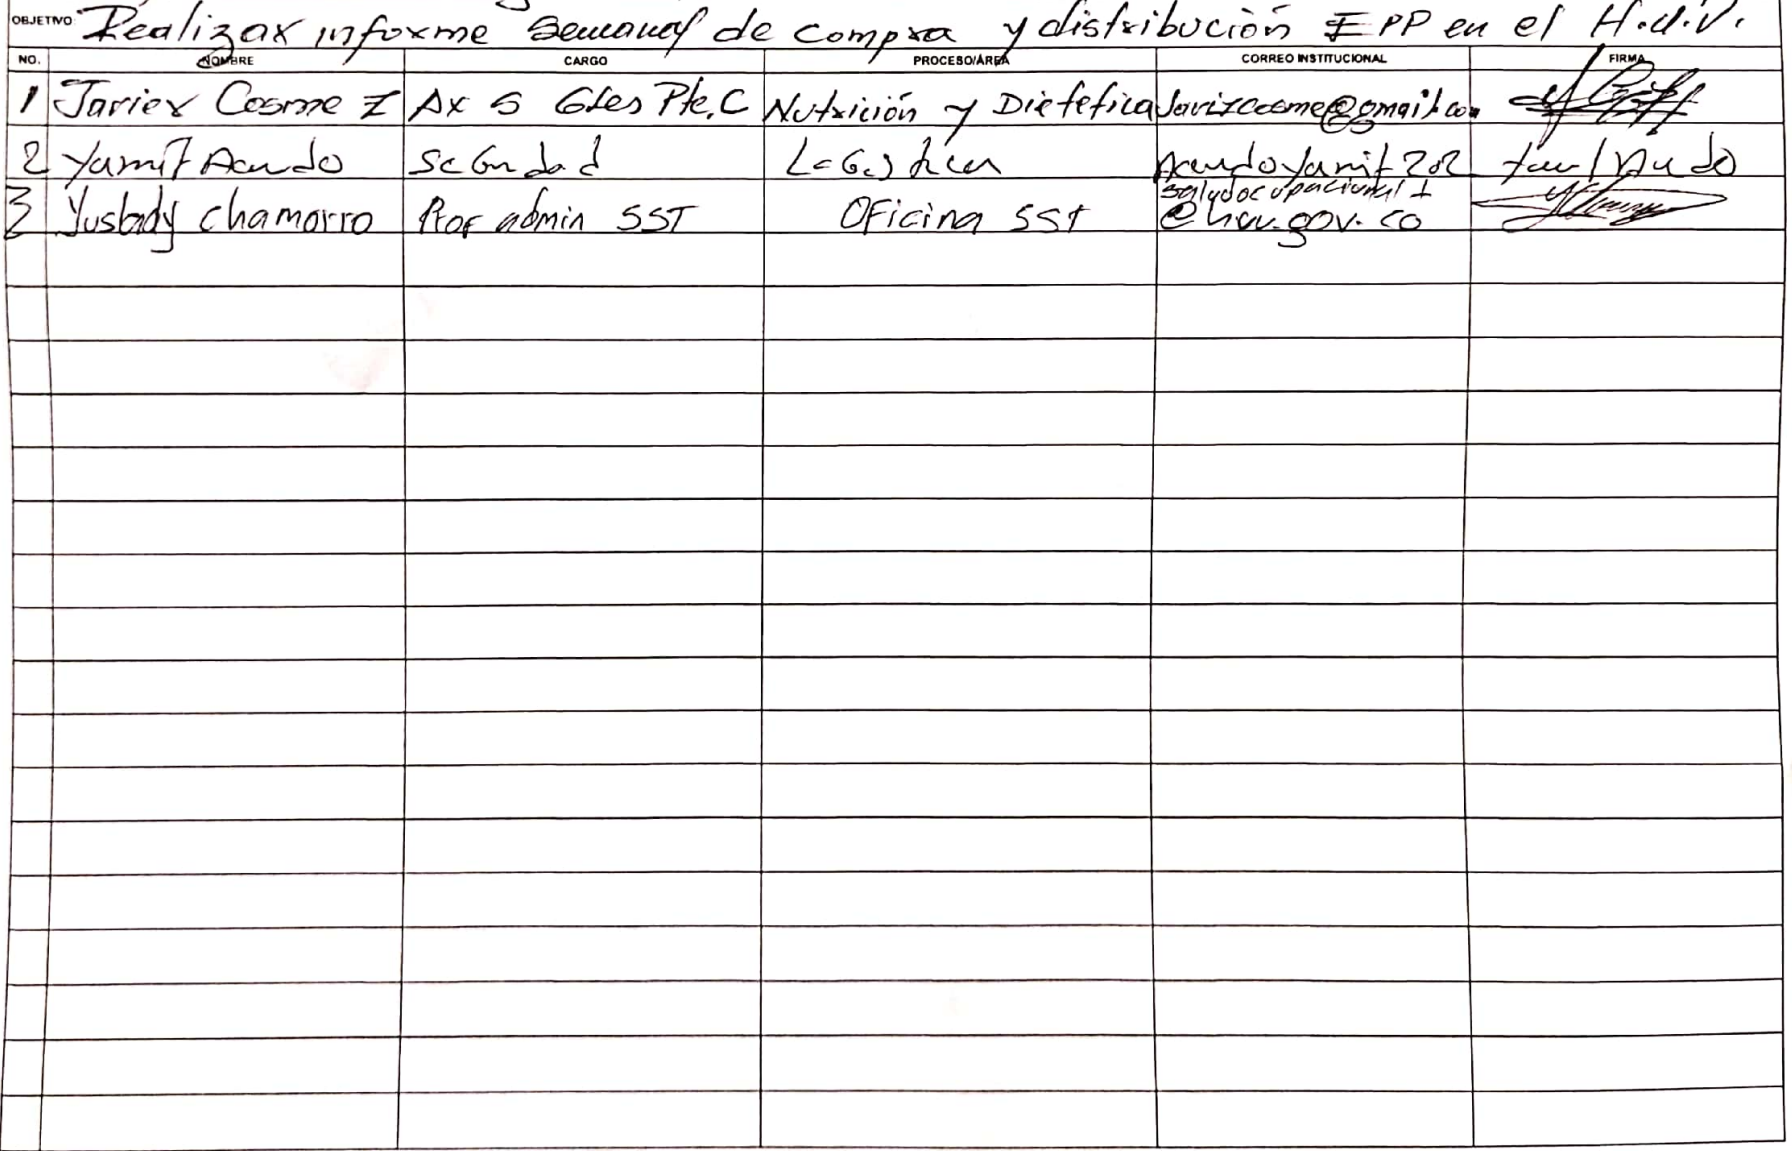 OBJETIVO: Realizar informe semanal de compra y distribución EPP en el H.U.V.
NO. NOMBRE CARGO PROCESO/ÁREA CORREO INSTITUCIONAL FIRMA
1 Javier Cosme Z Ax S Gles Pte.C Nutrición y Dietetica Javizcosme@gmail.co
2 Yamit Acudo Logistica Acudoyamit202
3 Yuslady Chamorro Prof admin SST Oficina SST saludocupacional1
@huv.gov.co